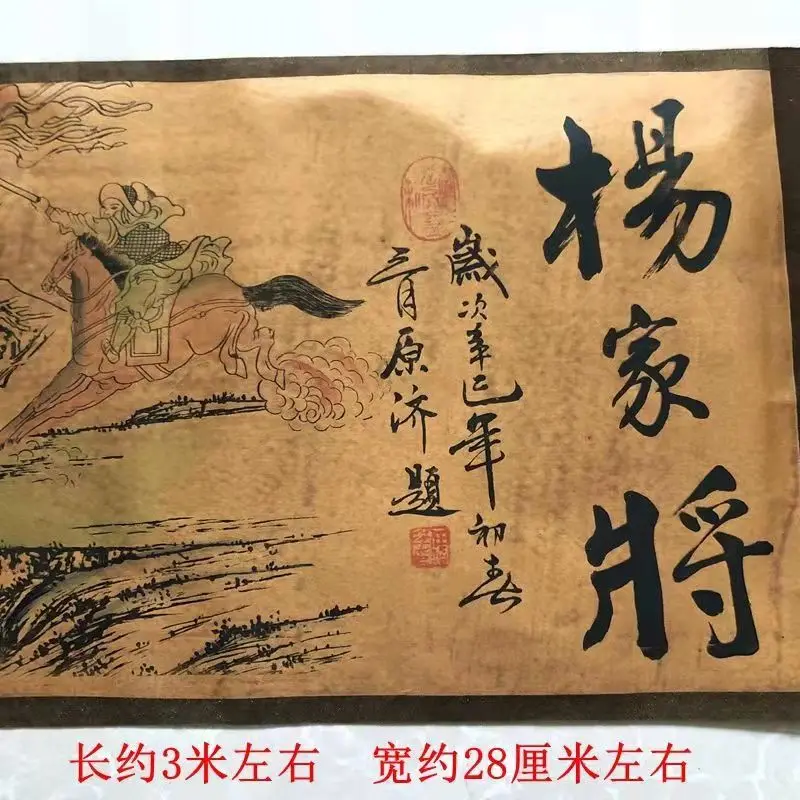 楊家將
歲次辛巳年初春
三月原济題
长约3米左右 宽约28厘米左右